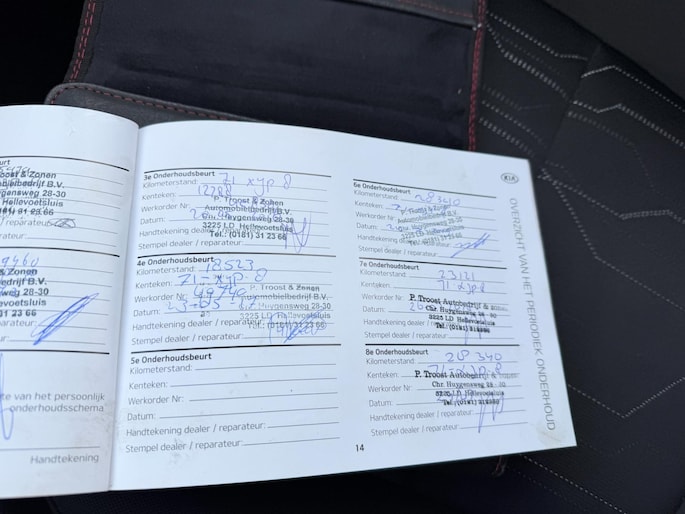 urt
Troost & Zonen
bielbedrijf B.V.
ygensweg 28-30
Hellevoetsluis
181) 31 23 66
reparateur:
rateur:
9460
& Zonen
bedrijf B.V.
weg 28-30
voetsluis
31 23 66
teur:
te van het persoonlijk
onderhoudsschema
Handtekening
3e Onderhoudsbeurt
Kilometerstand: 71 xyp 8
Kenteken: 12788
P. Troost & Zonen
Werkorder Nr:
Automobielbedrijf B.V.
Datum:
Chr. Huygensweg 28-30
Handtekening dealer / reparateur:
3225 LD Hellevoetsluis
Tel.: (0181) 31 23 66
Stempel dealer / reparateur:
4e Onderhoudsbeurt
Kilometerstand: 18523
Kenteken: 71-xyp-8
Werkorder Nr: 49740
P. Troost & Zonen
Automobielbedrijf B.V.
Datum:
Chr. Huygensweg 28-30
3225 LD Hellevoetsluis
Handtekening dealer / reparateur:
Tel.: (0181) 31 23 66
Stempel dealer / reparateur:
5e Onderhoudsbeurt
Kilometerstand:
Kenteken:
Werkorder Nr:
Datum:
Handtekening dealer / reparateur:
Stempel dealer / reparateur:
6e Onderhoudsbeurt
Kilometerstand: 28340
Kenteken:
P. Troost & Zonen
Werkorder Nr:
Automobielbedrijf B.V.
Datum:
Chr. Huygensweg 28-30
3225 LD Hellevoetsluis
Handtekening dealer
Tel.: (0181) 31 23 66
Stempel dealer / reparateur:
7e Onderhoudsbeurt
Kilometerstand: 23121
Kenteken: 71 xyp8
Werkorder Nr:
P. Troost Autobedrijf & Zonen
Datum:
Chr. Huygensweg 28 - 30
3225 LD Hellevoetsluis
Handtekening dealer / reparateur:
Stempel dealer / reparateur:
8e Onderhoudsbeurt
Kilometerstand: 28340
Kenteken: 71-xyp 8
P. Troost Autobedrijf & Zonen
Werkorder Nr:
Chr. Huygensweg 28 - 30
Datum:
3225 LD Hellevoetsluis
Handtekening dealer / reparateur:
Stempel dealer / reparateur:
14
KIA
OVERZICHT VAN HET PERIODIEK ONDERHOUD